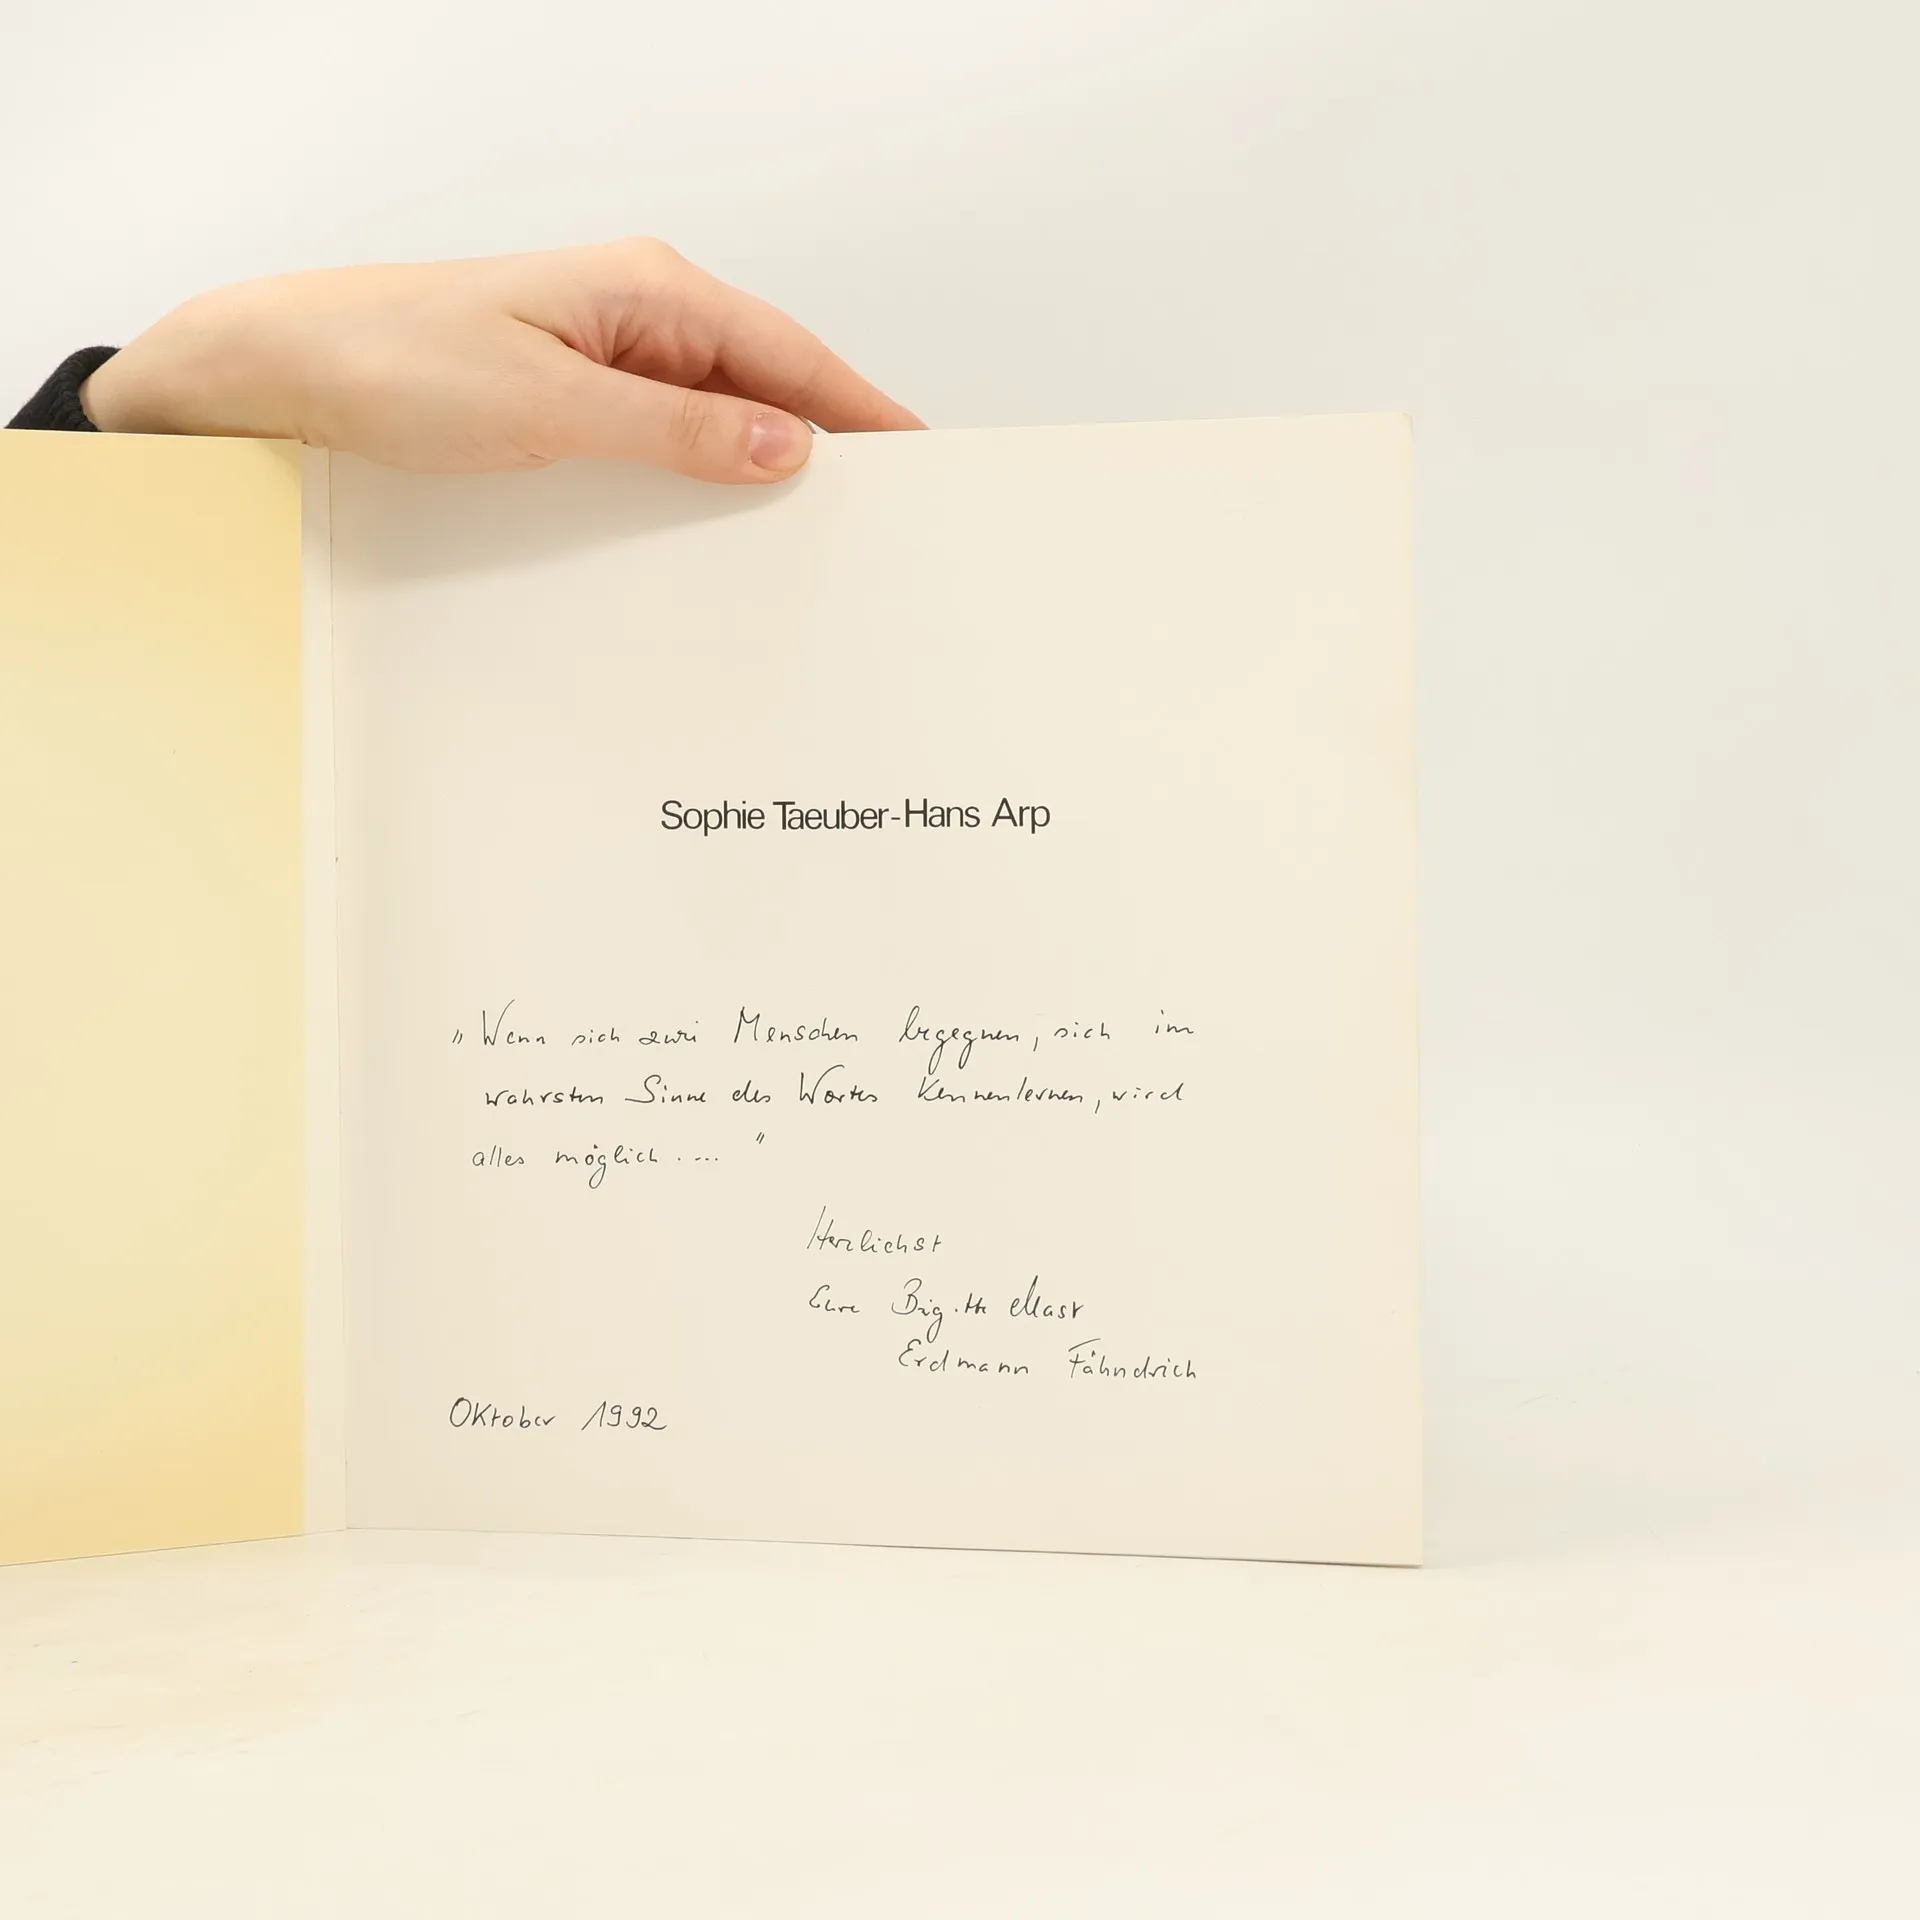 Sophie Taeuber-Hans Arp
" Wenn sich zwei Menschen begegnen, sich im
wahrsten Sinne des Wortes Kennenlernen, wird
alles möglich . ... "
Herzlichst
Eure Brigitte Mast
Erdmann Fähndrich
Oktober 1992